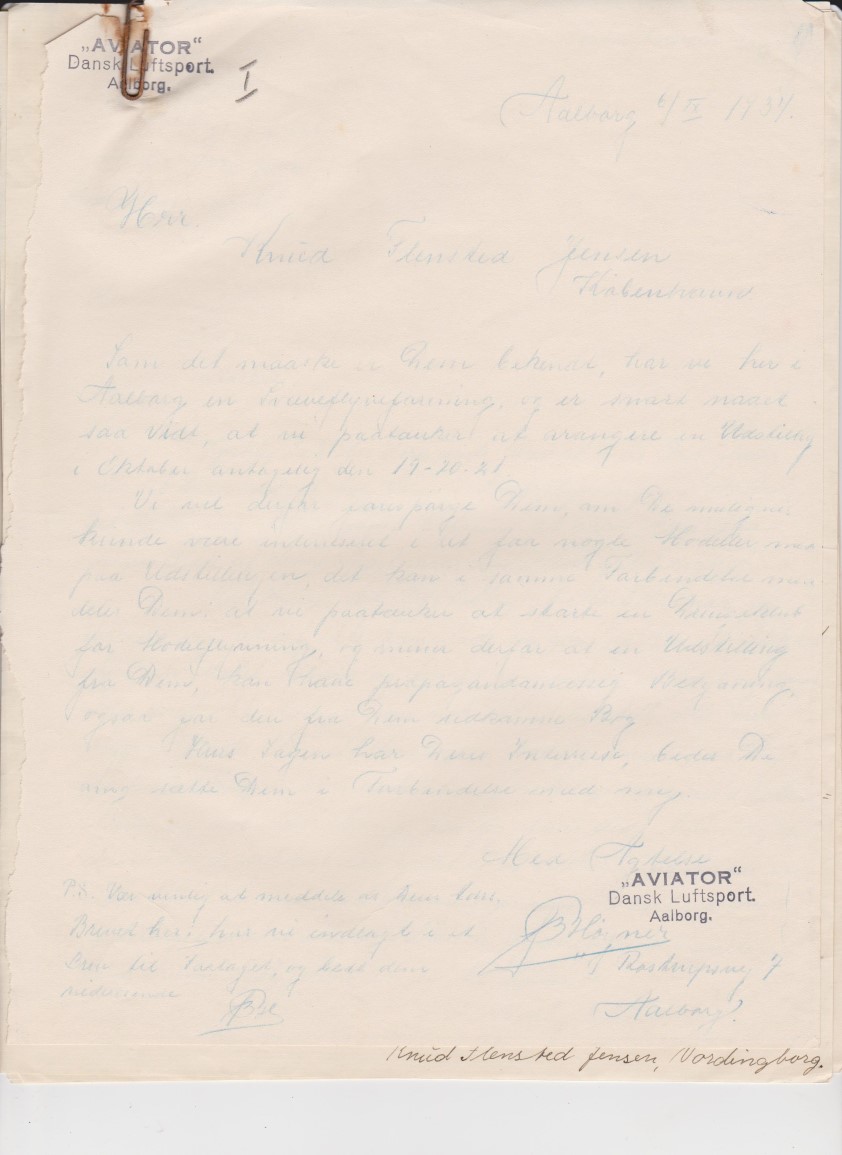 „AVIATOR“
Dansk Luftsport.
Aalborg.
I
Aalborg 6/IX 1934.
Herr.
Knud Flensted Jensen
København
Som det maaske er Dem bekendt, har vi her i
Aalborg en Svæveflyveforening, og er snart naaet
saa vidt, at vi paatænker at arangere en Udstilling
i Oktober antagelig den 19-20-21
Vi vil derfor Dem, om De muligvis
kunde være interesseret i at faa nogle Modeller med
paa Udstillingen, det kan i samme Forbindelse med
dele Dem, at vi paatænker at starte en
for Modelflyvning, og mener derfor at en Udstilling
fra Dem, kan have propagandamæssig Betydning,
ogsaa for den fra Dem udkomne Bog
Hvis Sagen har Deres Interesse, bedes De
sætte Dem i Forbindelse med mig.
Med Agtelse
„AVIATOR“
Dansk Luftsport.
Aalborg.
7
Aalborg.
P.S. Vær venlig at meddele os Deres
Brevet her har vi indlagt i et
til Forlaget, og bedt dem
Knud Flensted Jensen, Vordingborg.